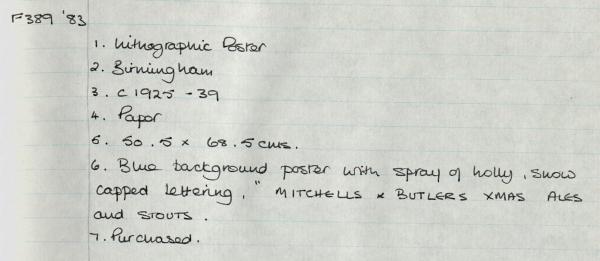 F389 '83
1. Lithographic Poster
2. Birmingham
3. c 1925 - 39
4. Paper
5. 50.5 x 68.5 cms.
6. Blue background poster with spray of holly, snow
capped lettering, " MITCHELLS & BUTLERS XMAS ALES
and STOUTS.
7. Purchased.